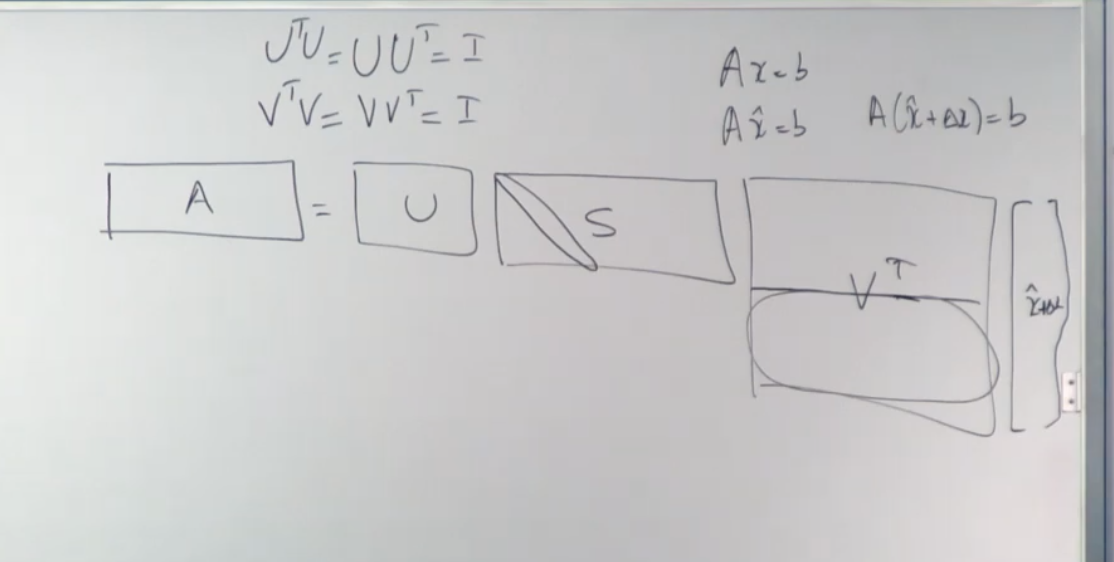 UᵀU = UUᵀ = I
VᵀV = VVᵀ = I
Ax = b
Ax̂ = b
A(x̂ + Δx) = b
A = U S Vᵀ [x̂+Δx]